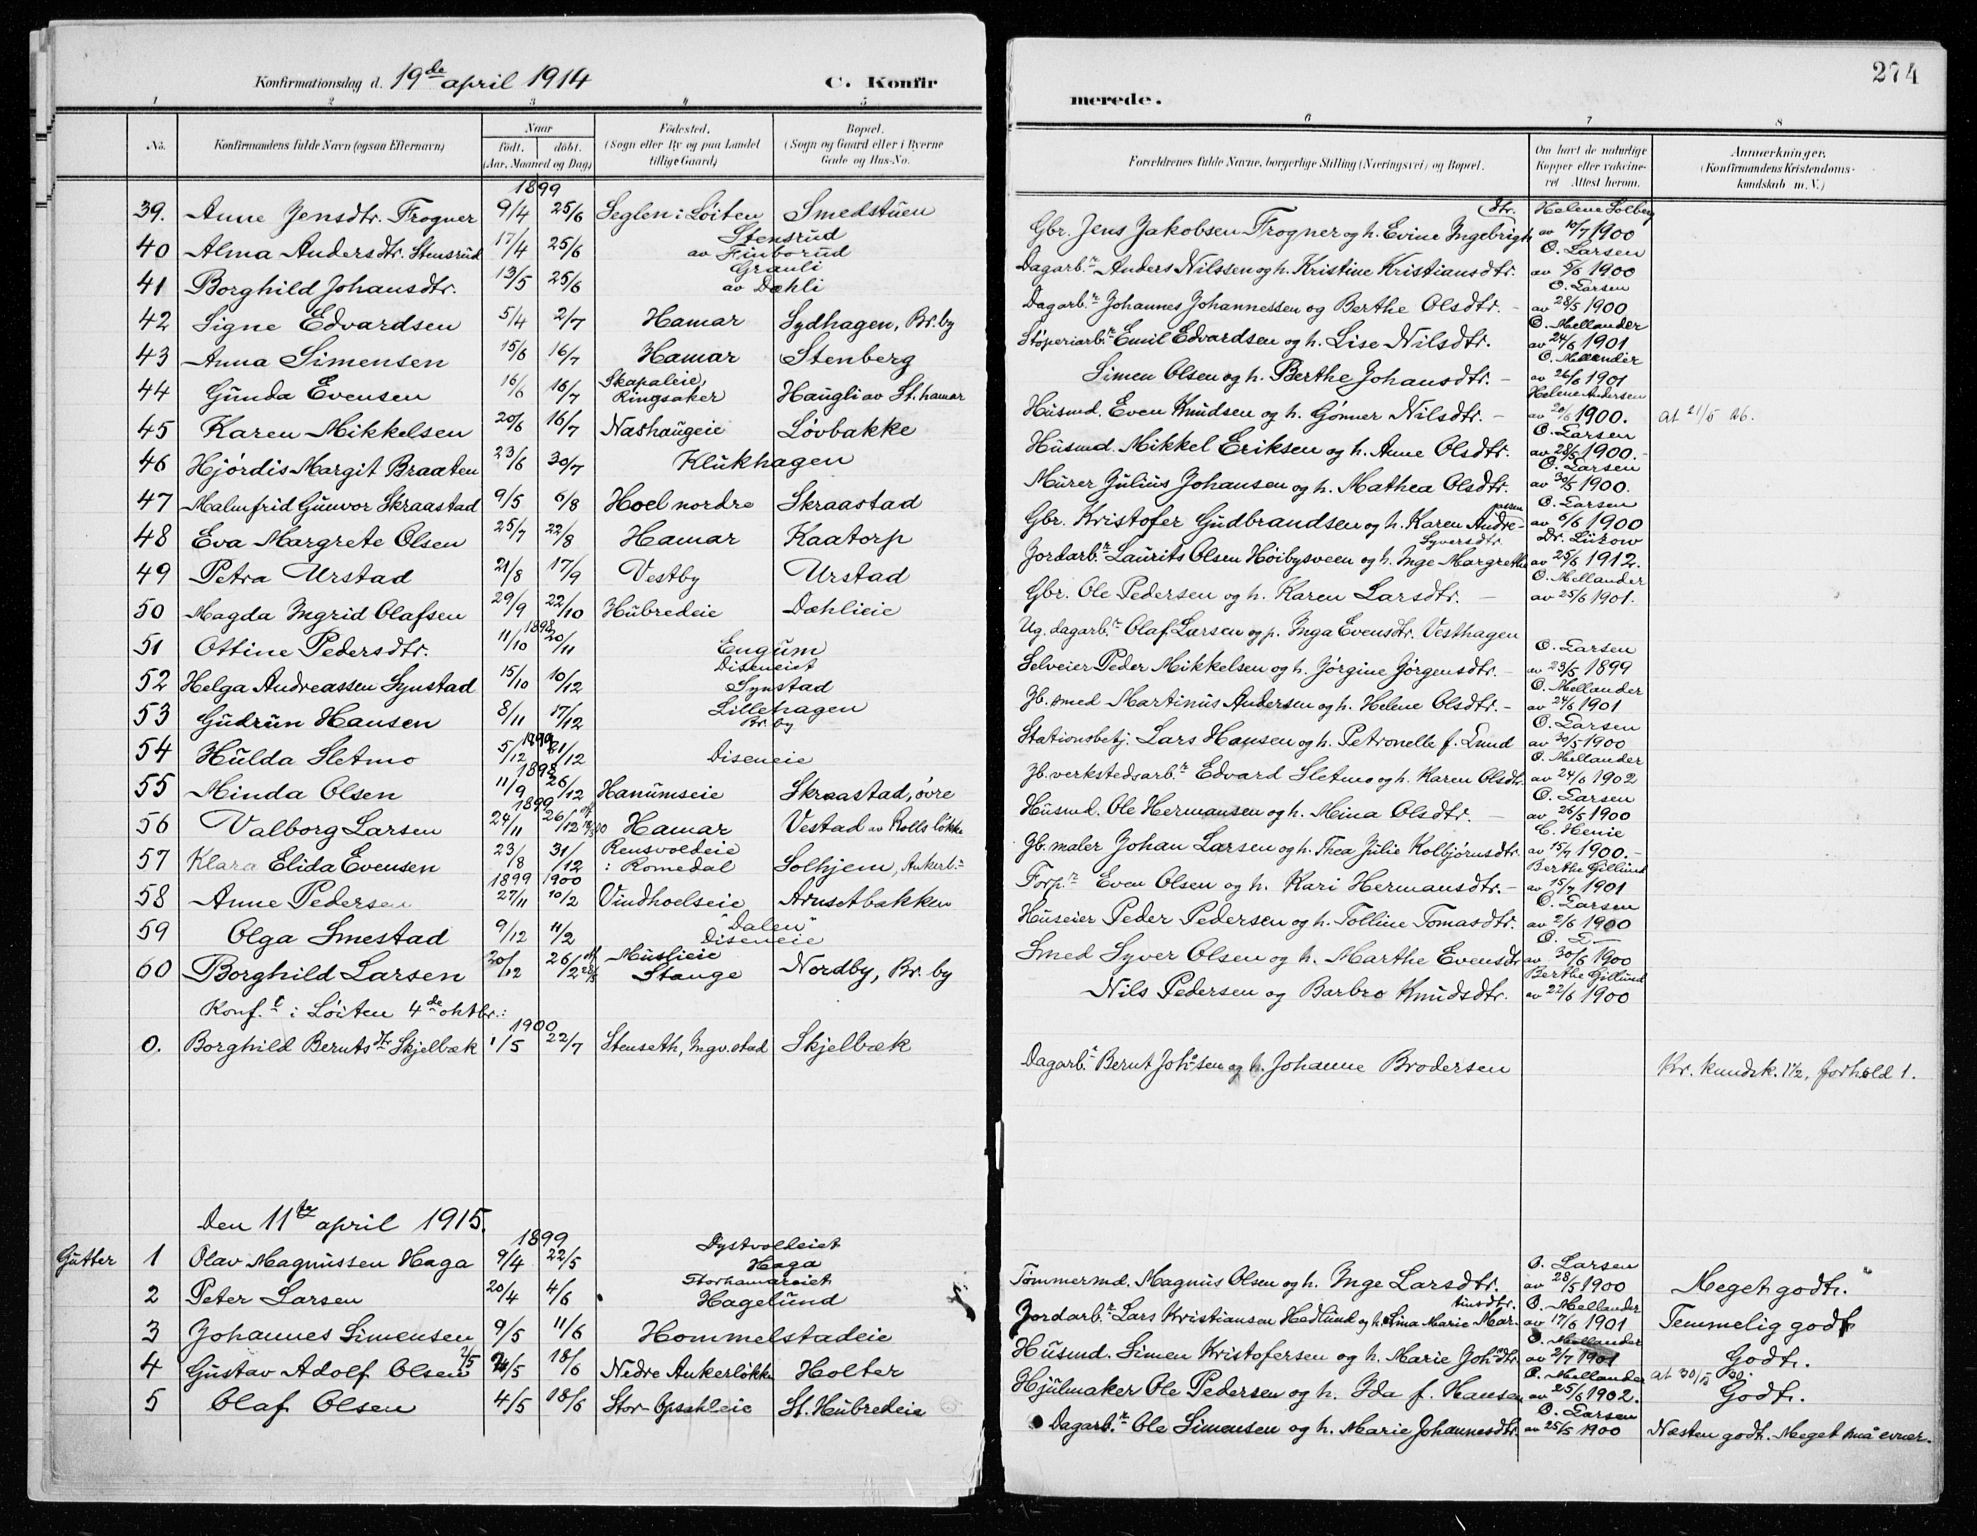 Konfirmationsdag d. 19de april 1914
C. Konfir
1 2 3 4 5
No.
Konfirmandens fulde Navn (ogsaa Efternavn)
Naar
født. døbt.
(Aar, Maaned og Dag)
Fødested.
(Sogn eller By og paa Landet
tillige Gaard)
Bopæl.
(Sogn og Gaard eller i Byerne
Gade og Hus-No.
1899
39. Anne Jensdtr. Frogner 9/4 25/6 Seglen i Løiten Smedstuen
40 Alma Andersdtr. Stensrud 17/4 25/6 Stensrud av Finborud
41 Borghild Johansdtr. 13/5 25/6 Granli av Dæhli
42 Signe Edvardsen 5/4 2/7 Hamar Sydhagen, Br.by
43 Anna Simensen 15/6 16/7 Hamar Stenberg
44 Gunda Evensen 16/6 16/7 Skapaleie, Ringsaker Haugli av St.hamar
45 Karen Mikkelsen 20/6 16/7 Nashaugeie Løvbakke
46 Hjördis Margit Braaten 23/6 30/7 Klukhagen
47 Malmfrid Gunvor Skraastad 9/5 6/8 Hoel nordre Skraastad
48 Eva Margrete Olsen 25/7 22/8 Hamar Kaatorp
49 Petra Urstad 21/8 17/9 Vestby Urstad
50 Magda Ingrid Olafsen 29/9 22/10 Hubredeie Dæhlieie
1898
51 Ottine Pedersdtr. 11/10 20/11 Engum Diseneiet
52 Helga Andreassen Synstad 15/10 10/12 Synstad
53 Gudrun Hansen 8/11 17/12 Lillehagen Br.by
1899
54 Hulda Sletmo 5/12 21/12 Diseneie
1898
55 Minda Olsen 11/9 26/12 Hanumseie Skraastad, øvre
1899
56 Valborg Larsen 24/11 26/12 Hamar Vestad av Rolls løkke
57 Klara Elida Evensen 23/8 31/12 Rensvoldeie i Romedal Solhjem, Ankerl.
1899 1900
58 Anne Pedersen 27/11 10/2 Vindhoelseie Arnsetbakken
59 Olga Smestad 9/12 11/2 "Dalen" Diseneie
60 Borghild Larsen 20/12 26/2 Muslieie Stange Nordby, Br.by
Konf.t i Løiten 4de oktbr.:
1900
0. Borghild Bernts dtr Skjelbæk 1/5 22/7 Stenseth, Ingv.stad Skjelbæk
Den 11te april 1915.
1899
Gutter 1 Olav Magnussen Haga 9/4 22/5 Dystvoldeiet Haga
2 Peter Larsen 20/4 4/6 Storhamareiet Hagelund
3 Johannes Simensen 9/5 11/6 Hommelstadeie
4 Gustav Adolf Olsen 2/5 18/6 Nedre Ankerløkke Holter
5 Olaf Olsen 4/5 18/6 Stor-Opsahleie St. Hubredeie
274
merede.
6 7 8
Forældrenes fulde Navne, borgerlige Stilling (Næringsvei) og Bopæl.
Om havt de naturlige
Kopper eller vakcine-
ret Attest herom.
Anmærkninger.
(Konfirmandens Kristendoms-
kundskab m. V.)
Gbr. Jens Jakobsen Frogner og h. Evine Ingebrigtdtr. Helene Solberg av 10/7 1900
Dagarb.r Anders Nilssen og h. Kristine Kristiansdtr. O. Larsen av 5/6 1900
Dagarb.r Johannes Johannessen og Berthe Olsdtr. - O. Larsen av 28/5 1900
Støperiarb.r Emil Edvardsen og h. Lise Nilsdtr. O. Mellander av 24/6 1901
Simen Olsen og h. Berthe Johansdtr. - O. Mellander av 26/6 1901
Husmd. Even Knudsen og h. Gønner Nilsdtr. - Helene Andersen av 20/6 1900. at 21/5 26.
Husmd. Mikkel Eriksen og h. Anne Olsdtr. O. Larsen av 28/5 1900.-
Murer Julius Johansen og h. Mathea Olsdtr. O. Larsen av 30/5 1900.
Gbr. Kristofer Gudbrandsen og h. Karen Andre- O. Larsen av 6/6 1900
Jordarb.r Laurits Olsen Høibysveen og h. Inge Margrethe Syversdtr. Dr. Lükow av 25/6 1912.
Gbr. Ole Pedersen og h. Karen Larsdtr. - O. Mellander av 25/6 1901.
Ug. dagarb.r Olaf Larsen og p. Inga Evensdtr. Vesthagen
Selveier Peder Mikkelsen og h. Jørgine Jørgensdtr. - O. Larsen av 23/5 1899
Jb. smed Martinus Andersen og h. Helene Olsdtr. - O. Mellander av 24/6 1901
Stationsbetj. Lars Hansen og h. Petronelle f. Lund O. Larsen av 30/5 1900
Jb. verkstedsarb.r Edvard Sletmo og h. Karen Olsdtr O. Mellander av 24/6 1902
Husmd. Ole Hermansen og h. Meina Olsdtr. - O. Larsen av 26/5 1900
Jb. maler Johan Larsen og h. Thea Julie Kolbjørnsdtr. C. Henie av 15/7 1900.-
Forp.r Even Olsen og h. Kari Hermansdtr. - Berthe Gillund av 15/7 1901
Huseier Peder Pedersen og h. Tolline Tomasdtr. O. Larsen av 2/6 1900
Smed Syver Olsen og h. Marthe Evensdtr O. L- av 30/6 1900
Nils Pedersen og Barbro Knudsdtr. Berthe Gillund av 22/6 1900
Dagarb.r Bernt Joh.sen og h. Johanne Brodersen Kr. kundsk. 1 1/2, forhold 1.
Tømmermd. Magnus Olsen og h. Inge Larsdtr. O. Larsen av 28/5 1900 Meget godt.
Jordarb.r Lars Kristiansen Hedlund og h. Lina Marie Mar-tinsdtr. O. Mellander av 17/6 1901 Temmelig godt
Husmd. Simen Kristofersen og h. Marie Joh.sdtr O. Mellander av 2/7 1901 Godt.
Hjulmaker Ole Pedersen og h. Ida f. Hansen O. Mellander av 25/6 1902. Godt.
Dagarb.r Ole Simensen og h. Marie Johannesdtr. O. Larsen av 25/5 1900 Næsten godt. Meget små evner.